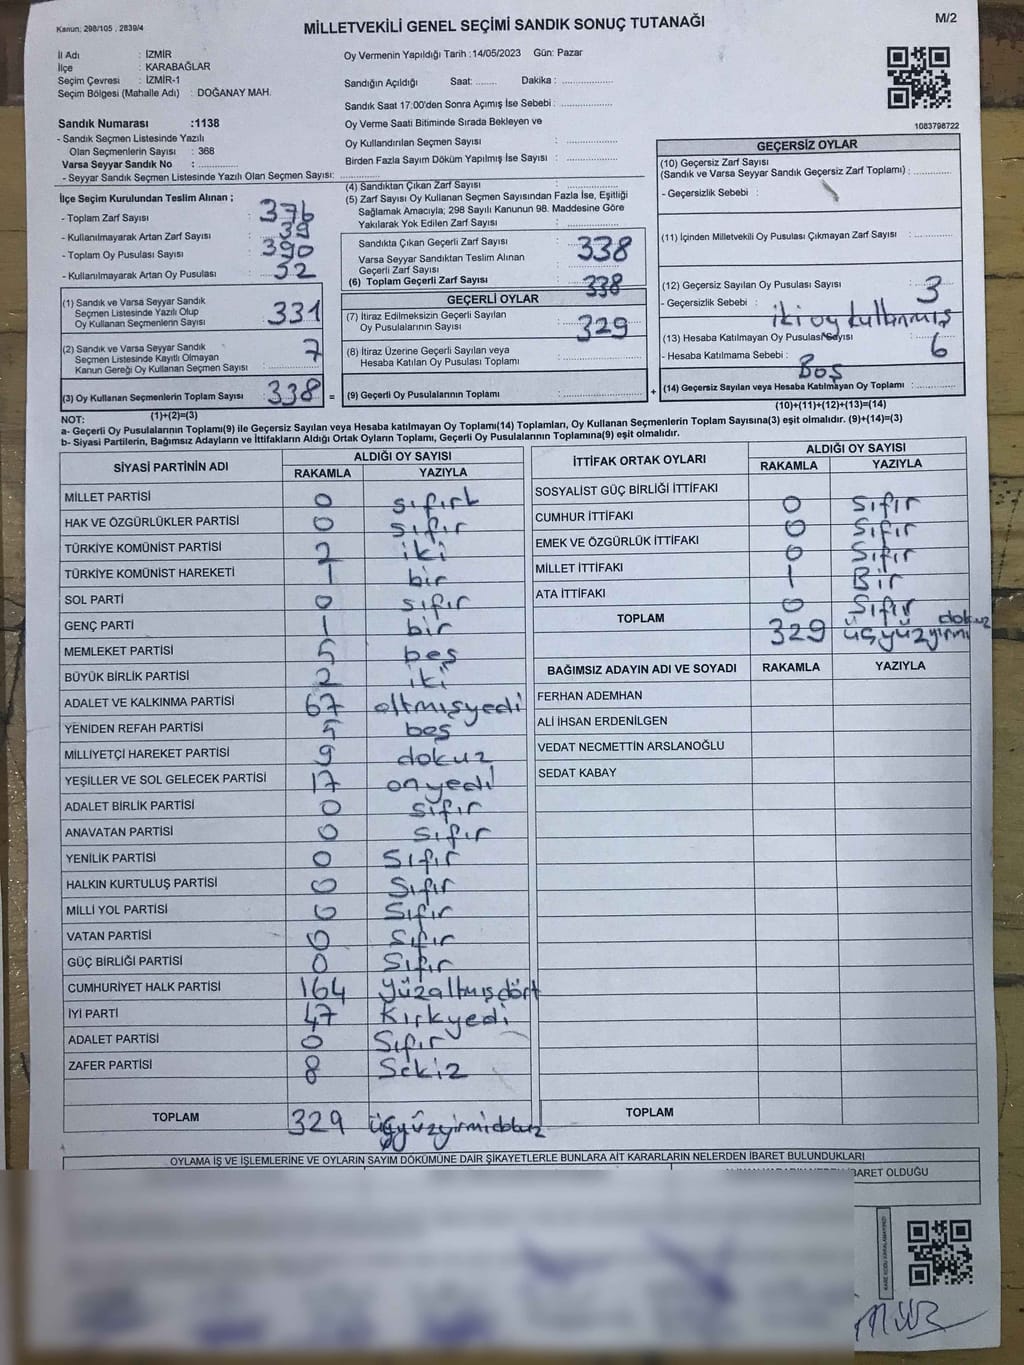 Kanun: 298/105 , 2839/4
MİLLETVEKİLİ GENEL SEÇİMİ SANDIK SONUÇ TUTANAĞI
M/2
İl Adı : İZMİR
İlçe : KARABAĞLAR
Seçim Çevresi : İZMİR-1
Seçim Bölgesi (Mahalle Adı) : DOĞANAY MAH.
Oy Vermenin Yapıldığı Tarih :14/05/2023 Gün: Pazar
Sandığın Açıldığı Saat: ........ Dakika : ..................
Sandık Saat 17:00'den Sonra Açımış İse Sebebi : ..................
Oy Verme Saati Bitiminde Sırada Bekleyen ve
Oy Kullandırılan Seçmen Sayısı : ..................
Birden Fazla Sayım Döküm Yapılmış İse Sayısı : ..................
1083798722
Sandık Numarası :1138
- Sandık Seçmen Listesinde Yazılı
Olan Seçmenlerin Sayısı : 368
Varsa Seyyar Sandık No : ..................
- Seyyar Sandık Seçmen Listesinde Yazılı Olan Seçmen Sayısı: ..................
İlçe Seçim Kurulundan Teslim Alınan ;
- Toplam Zarf Sayısı : 376
- Kullanılmayarak Artan Zarf Sayısı : 39
- Toplam Oy Pusulası Sayısı : 390
- Kullanılmayarak Artan Oy Pusulası : 52
(1) Sandık ve Varsa Seyyar Sandık
Seçmen Listesinde Yazılı Olup
Oy Kullanan Seçmenlerin Sayısı : 331
(2) Sandık ve Varsa Seyyar Sandık
Seçmen Listesinde Kayıtlı Olmayan
Kanun Gereği Oy Kullanan Seçmen Sayısı : 7
(3) Oy Kullanan Seçmenlerin Toplam Sayısı : 338 =
(1)+(2)=(3)
(4) Sandıktan Çıkan Zarf Sayısı : ..................
(5) Zarf Sayısı Oy Kullanan Seçmen Sayısından Fazla İse, Eşitliği
Sağlamak Amacıyla; 298 Sayılı Kanunun 98. Maddesine Göre
Yakılarak Yok Edilen Zarf Sayısı : ..................
Sandıkta Çıkan Geçerli Zarf Sayısı : 338
Varsa Seyyar Sandıktan Teslim Alınan
Geçerli Zarf Sayısı
(6) Toplam Geçerli Zarf Sayısı : 338
GEÇERLİ OYLAR
(7) İtiraz Edilmeksizin Geçerli Sayılan
Oy Pusulalarının Sayısı : 329
(8) İtiraz Üzerine Geçerli Sayılan veya
Hesaba Katılan Oy Pusulası Toplamı : ..................
(9) Geçerli Oy Pusulalarının Toplamı : .................. +
GEÇERSİZ OYLAR
(10) Geçersiz Zarf Sayısı
(Sandık ve Varsa Seyyar Sandık Geçersiz Zarf Toplamı) : ............
- Geçersizlik Sebebi :
(11) İçinden Milletvekili Oy Pusulası Çıkmayan Zarf Sayısı : ............
(12) Geçersiz Sayılan Oy Pusulası Sayısı : 3
- Geçersizlik Sebebi : iki oy kullanmış
(13) Hesaba Katılmayan Oy Pusulası Sayısı : 6
- Hesaba Katılmama Sebebi : Boş
(14) Geçersiz Sayılan veya Hesaba Katılmayan Oy Toplamı : ............
(10)+(11)+(12)+(13)=(14)
NOT:
a- Geçerli Oy Pusulalarının Toplamı(9) ile Geçersiz Sayılan veya Hesaba katılmayan Oy Toplamı(14) Toplamları, Oy Kullanan Seçmenlerin Toplam Sayısına(3) eşit olmalıdır. (9)+(14)=(3)
b- Siyasi Partilerin, Bağımsız Adayların ve İttifakların Aldığı Ortak Oyların Toplamı, Geçerli Oy Pusulalarının Toplamına(9) eşit olmalıdır.
SİYASİ PARTİNİN ADI ALDIĞI OY SAYISI
RAKAMLA YAZIYLA
MİLLET PARTİSİ 0 sıfırk
HAK VE ÖZGÜRLÜKLER PARTİSİ 0 sıfır
TÜRKİYE KOMÜNİST PARTİSİ 2 iki
TÜRKİYE KOMÜNİST HAREKETİ 1 bir
SOL PARTİ 0 sıfır
GENÇ PARTİ 1 bir
MEMLEKET PARTİSİ 5 beş
BÜYÜK BİRLİK PARTİSİ 2 iki
ADALET VE KALKINMA PARTİSİ 67 altmışyedi
YENİDEN REFAH PARTİSİ 5 beş
MİLLİYETÇİ HAREKET PARTİSİ 9 dokuz
YEŞİLLER VE SOL GELECEK PARTİSİ 17 onyedi
ADALET BİRLİK PARTİSİ 0 sıfır
ANAVATAN PARTİSİ 0 sıfır
YENİLİK PARTİSİ 0 Sıfır
HALKIN KURTULUŞ PARTİSİ 0 Sıfır
MİLLİ YOL PARTİSİ 0 Sıfır
VATAN PARTİSİ 0 Sıfır
GÜÇ BİRLİĞİ PARTİSİ 0 Sıfır
CUMHURİYET HALK PARTİSİ 164 yüzaltmışdört
İYİ PARTİ 47 Kırkyedi
ADALET PARTİSİ 0 Sıfır
ZAFER PARTİSİ 8 Sekiz
TOPLAM 329 üçyüzyirmidokuz
İTTİFAK ORTAK OYLARI ALDIĞI OY SAYISI
RAKAMLA YAZIYLA
SOSYALİST GÜÇ BİRLİĞİ İTTİFAKI 0 Sıfır
CUMHUR İTTİFAKI 0 Sıfır
EMEK VE ÖZGÜRLÜK İTTİFAKI 0 Sıfır
MİLLET İTTİFAKI 1 Bir
ATA İTTİFAKI 0 Sıfır
TOPLAM 329 üçyüzyirmi dokuz
BAĞIMSIZ ADAYIN ADI VE SOYADI RAKAMLA YAZIYLA
FERHAN ADEMHAN
ALİ İHSAN ERDENİLGEN
VEDAT NECMETTİN ARSLANOĞLU
SEDAT KABAY
TOPLAM
OYLAMA İŞ VE İŞLEMLERİNE VE OYLARIN SAYIM DÖKÜMÜNE DAİR ŞİKAYETLERLE BUNLARA AİT KARARLARIN NELERDEN İBARET BULUNDUKLARI
İBARET OLDUĞU